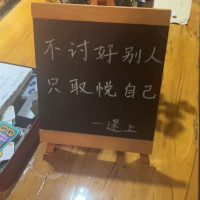 不讨好别人
只取悦自己
一遇上